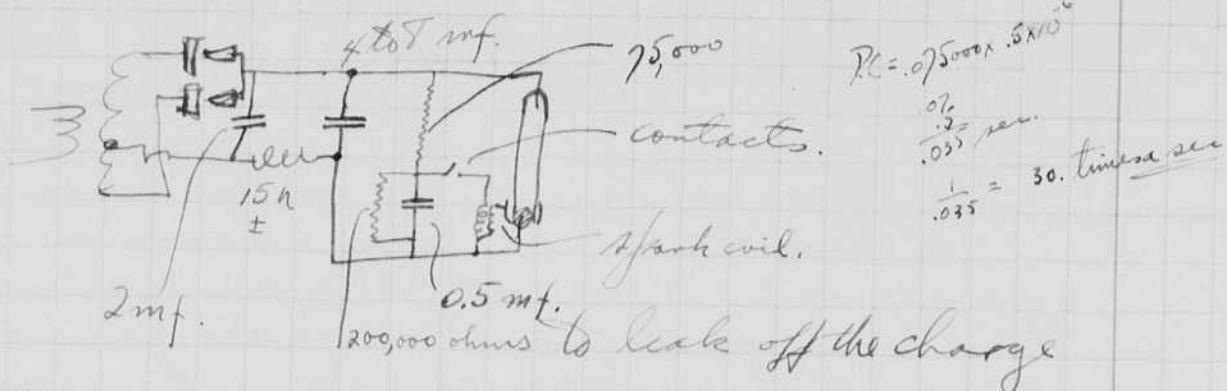 4 to 8 mf.
75,000
contacts.
15h
±
spark coil.
2mf.
0.5 mf.
200,000 ohms to leak off the charge
RC = .075000 x .5x10⁻⁶
.07
.5
.035 sec.
1/.035 = 30. times a sec